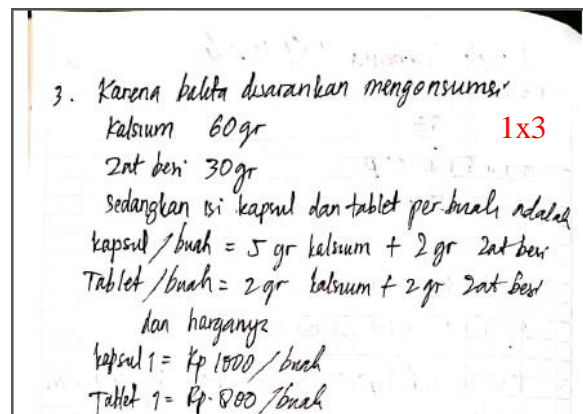 3. Karena balita disarankan mengonsumsi
Kalsium 60gr
1x3
Zat besi 30gr
Sedangkan isi kapsul dan tablet per.buah adalah
kapsul/buah = 5 gr kalsium + 2 gr zat besi
Tablet/buah = 2 gr kalsium + 2 gr zat besi
dan harganya
kapsul 1 = Rp 1000/buah
Tablet 1 = Rp. 800/buah